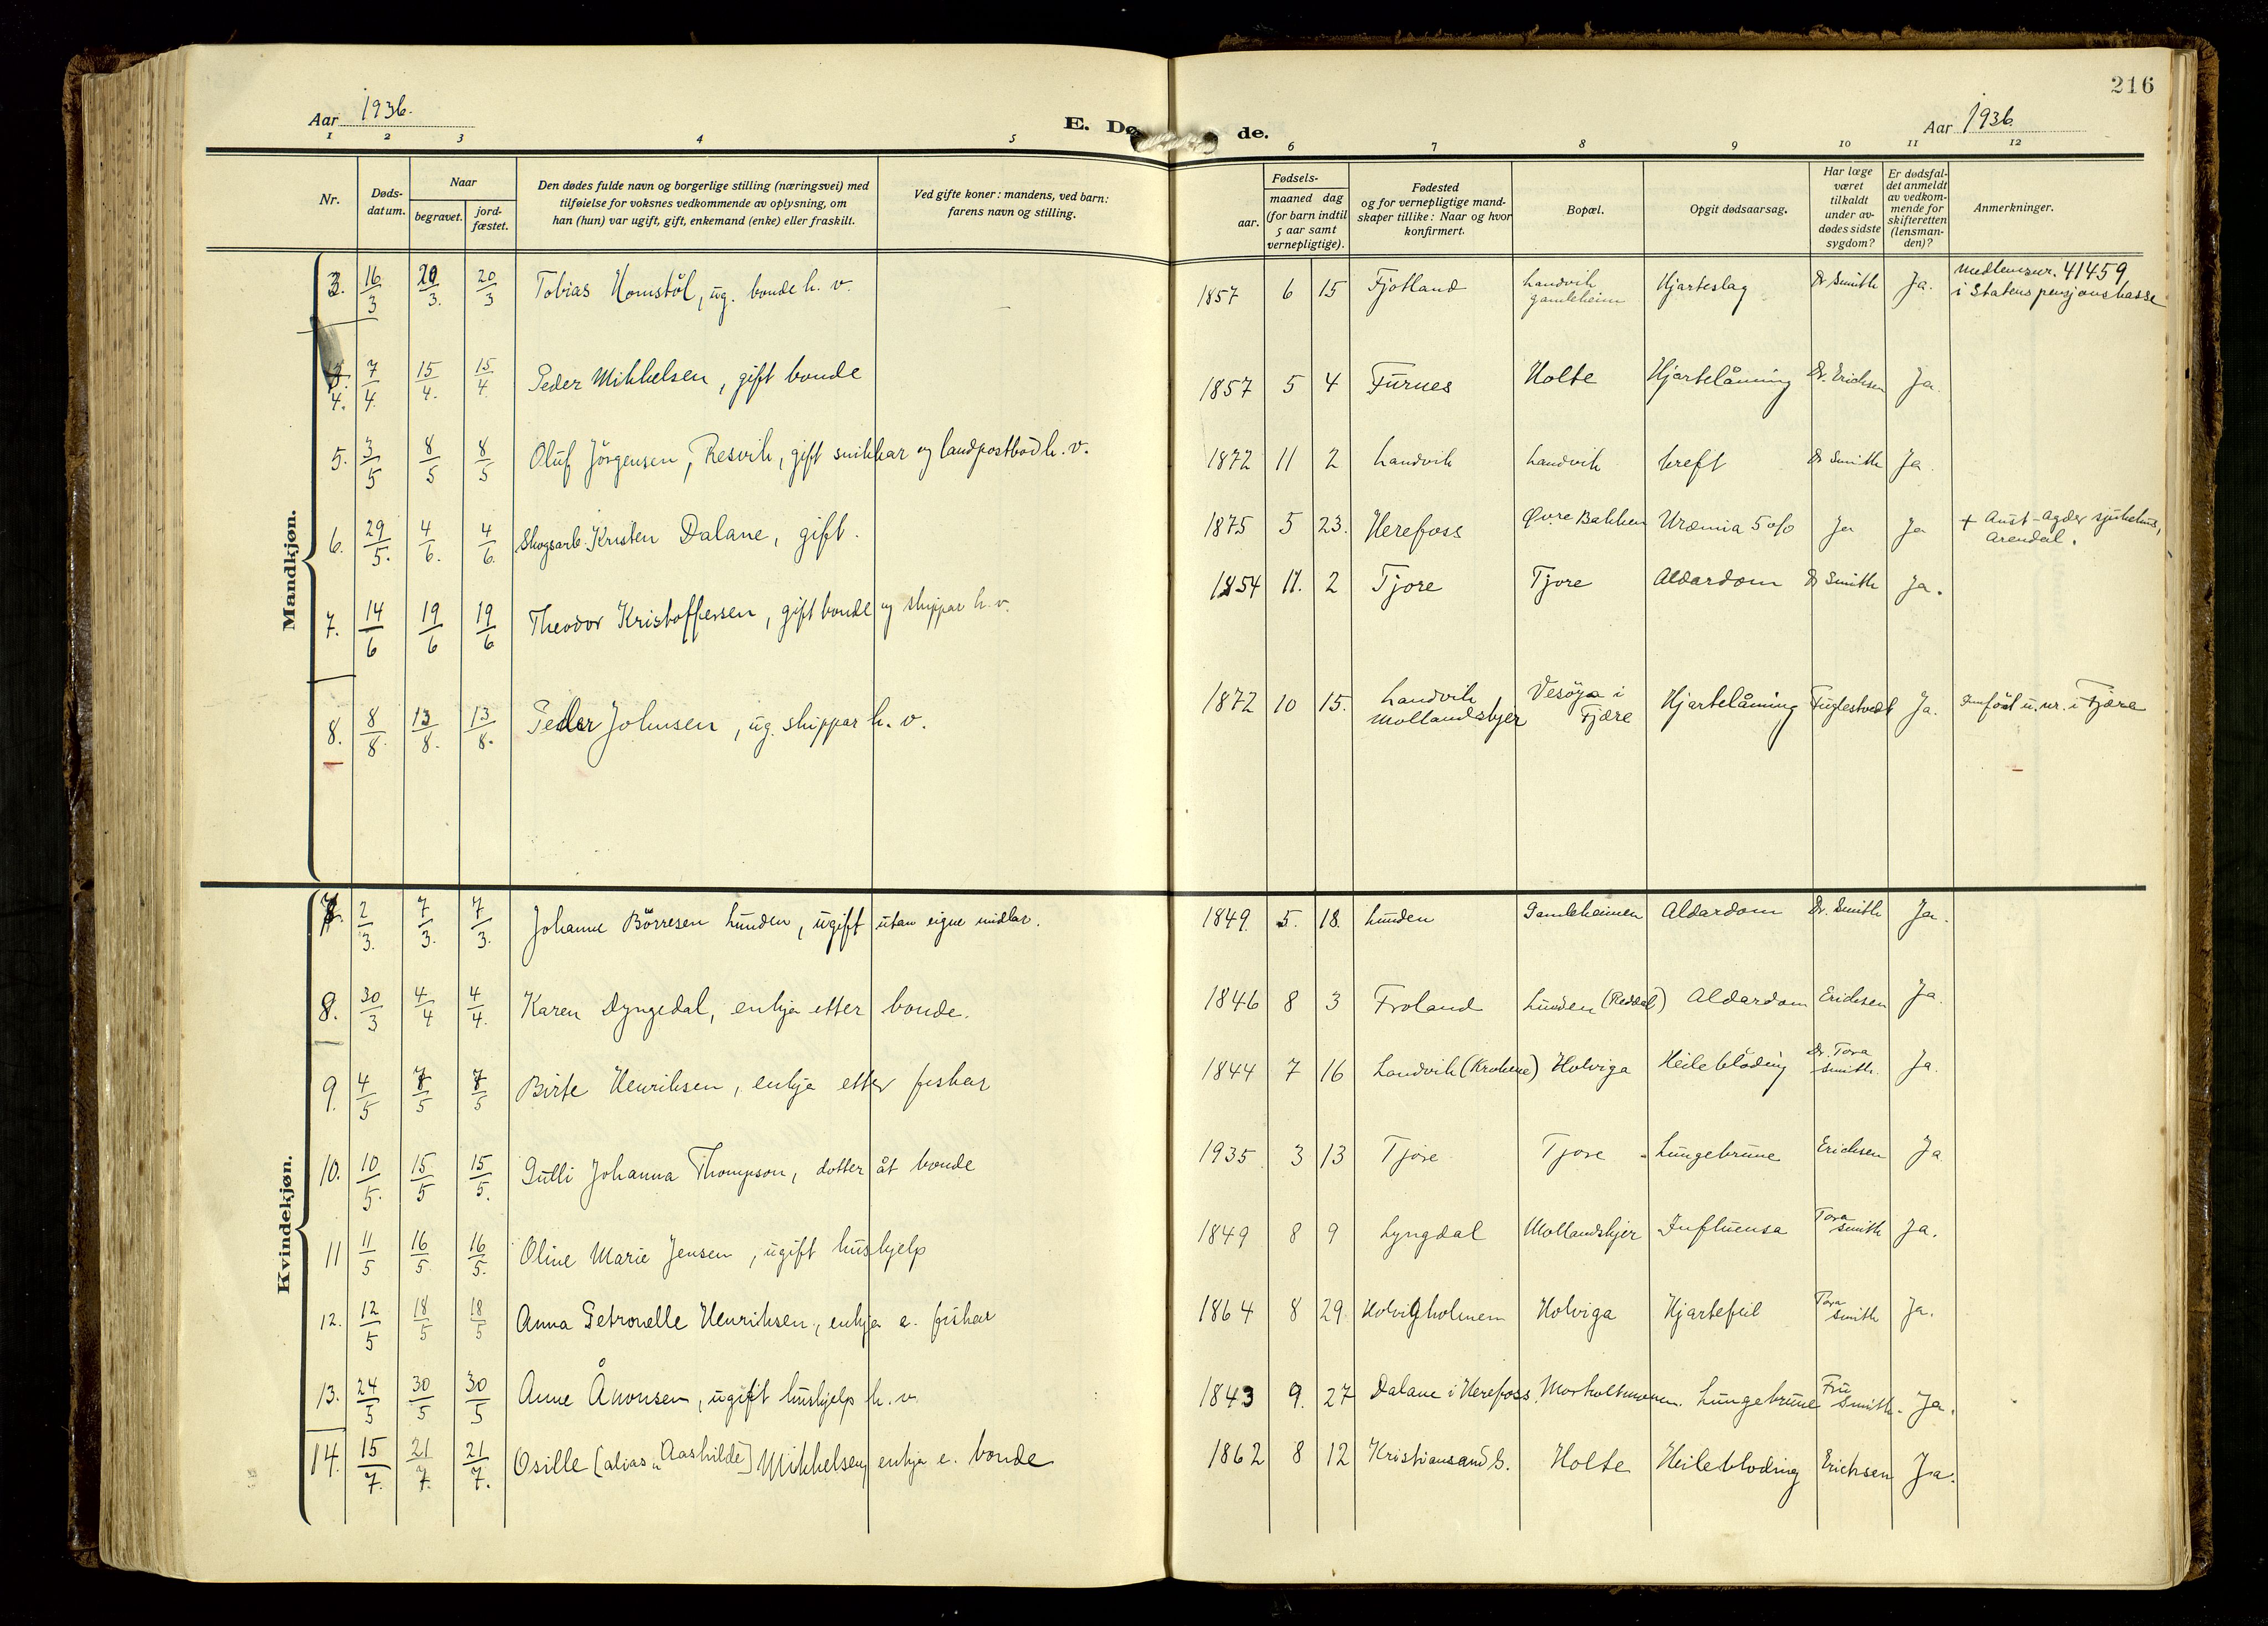 216
Aar 1936.
E. Dø de.
Aar 1936
1 2 3 4 5 6 7 8 9 10 11 12
Nr.
Døds-
datum.
Naar
begravet.
jord-
fæstet.
Den dødes fulde navn og borgerlige stilling (næringsvei) med
tilføielse for voksnes vedkommende av oplysning, om
han (hun) var ugift, gift, enkemand (enke) eller fraskilt.
Ved gifte koner: mandens, ved barn:
farens navn og stilling.
Fødsels-
aar.
maaned dag
(for barn indtil
5 aar samt
vernepligtige).
Fødested
og for vernepligtige mand-
skaper tillike: Naar og hvor
konfirmert.
Bopæl.
Opgit dødsaarsag.
Har læge
været
tilkaldt
under av-
dødes sidste
sygdom?
Er dødsfal-
det anmeldt
av vedkom-
mende for
skifteretten
(lensman-
den)?
Anmerkninger.
Mandkjøn.
3. 16/3 20/3. 20/3 Tobias Homstøl, ug. bonde h. v. 1857 6 15 Fjotland Landvik gamleheim Hjarteslag Dr Smith Ja. Medlemsnr. 41459 i Statens pensjonskasse
4. 7/4. 15/4. 15/4 Peder Mikkelsen, gift bonde 1857 5 4 Furnes Holte Hjartelåming Dr. Erichsen Ja.
5. 3/5 8/5 8/5 Oluf Jørgensen, Resvik, gift snikkar og landpostbod h. v. 1872 11 2 Landvik Landvik kreft Dr Smith Ja.
6. 29/5. 4/6. 4/6. Skogsarb. Kristen Dalane, gift. 1875 5 23. Herefoss Øvre Bakken Uræmia 5 o/o Ja Ja + Aust-Agder sjukehus, Arendal.
7. 14/6 19/6 19/6 Theodor Kristoffersen, gift bonde og skippar h. v. 1854 11. 2 Tjore Tjore Aldardom Dr Smith Ja.
8. 8/8. 13/8. 13/8. Peder Johnsen, ug. skippar h. v. 1872 10 15. Landvik Mollandskjer Vesøya i Fjære Hjartelåming Fuglestvedt Ja. Innført u. nr. i Fjære
Kvindekjøn.
7. 2/3. 7/3. 7/3. Johanne Børresen Lunden, ugift utan eigne midlar. 1849. 5. 18. Lunden Gamleheimen Aldardom Dr. Smith Ja.
8. 30/3 4/4 4/4. Karen Dyngedal, enkja etter bonde. 1846 8 3 Froland Lunden (Reddal) Aldardom Erichsen Ja.
9. 4/5 8/5 8/5 Birte Henriksen, enkja etter fiskar 1844 7 16 Landvik (Krokene) Holviga Heilebløding Dr. Tora Smith. Ja.
10. 10/5. 15/5 15/5. Gulli Johanna Thompson, dotter åt bonde 1935 3 13 Tjore Tjore Lungebrune Erichsen Ja
11 11/5 16/5. 16/5. Oline Marie Jensen, ugift hushjelp 1849 8 9 Lyngdal Mollandskjer Influensa Tora Smith Ja.
12. 12/5 18/5 18/5 Anna Petronelle Henriksen, enkja e. fiskar 1864 8 29. Holvigholmen Holviga Hjartefeil Tora Smith Ja.
13. 24/5 30/5 30/5 Anne Ånonsen, ugift hushjelp h. v. 1843 9. 27 Dalane i Herefoss. Morholtmoen. Lungebrune Fru Smith. Ja.
14. 15/7. 21/7. 21/7. Osille [alias "Aashilde] Mikkelsen, enkja e. bonde 1862 8 12 Kristiansand S. Holte Heilebloding Erichsen Ja.